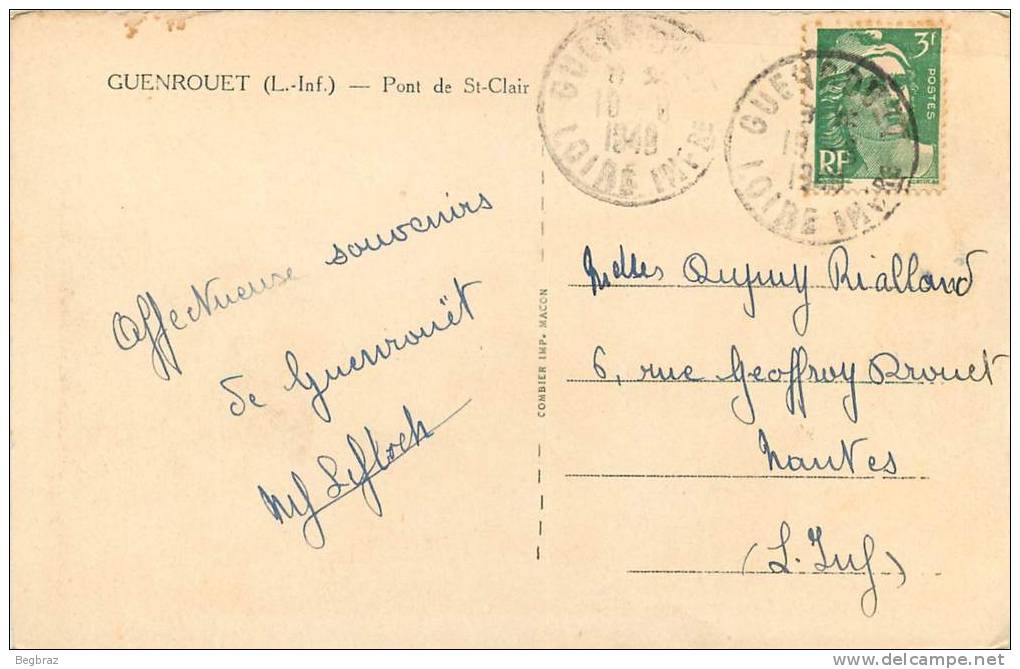 GUENROUET (L.-Inf.) — Pont de St-Clair
Affectueuse souvenirs
de Guenrouët
COMBIER IMP. MACON
GUENROUET
1949
LOIRE INFRE
3f
POSTES
RF
GUENROUET
LOIRE INFRE
Melles Rialland
6, rue Geoffroy Drouet
Nantes
(L. Inf)
Begbraz
www.delcampe.net